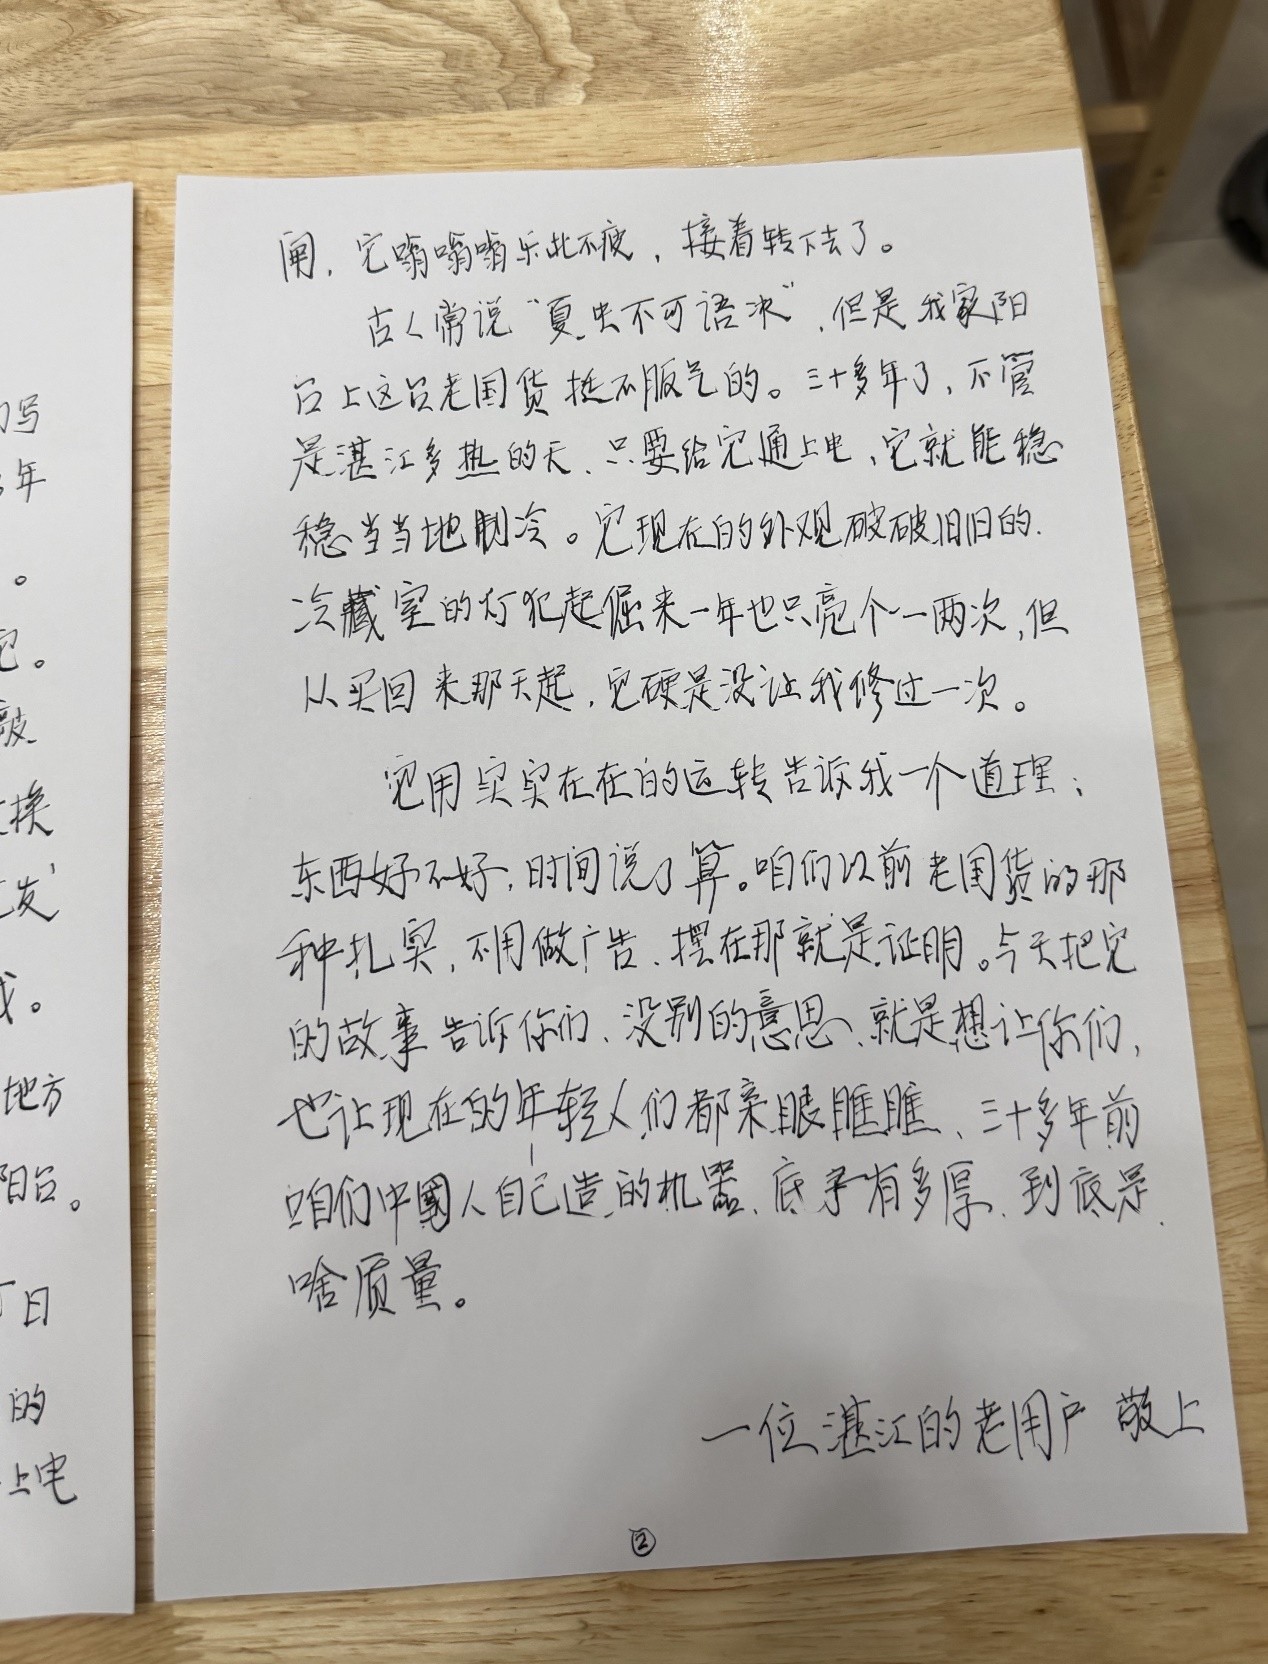 写
年
。
它。
敲
换
发'
我。
地方
阳台。
日
的
上电
闸，它嗡嗡嗡乐此不疲，接着转下去了。
古人常说“夏虫不可语冰”，但是我家阳
台上这只老国货挺不服气的。三十多年了，不管
是湛江多热的天、只要给它通上电、它就能稳
稳当当地制冷。它现在的外观破破旧旧的.
冷藏室的灯犯起倔来一年也只亮个一两次，但
从买回来那天起，它硬是没让我修过一次。
它用实实在在的运转告诉我一个道理：
东西好不好，时间说了算。咱们以前老国货的那
种扎实，不用做广告、摆在那就是证明。今天把它
的故事告诉你们、没别的意思、就是想让你们，
也让现在的年轻人们都亲眼瞧瞧、三十多年前
咱们中國人自己造的机器、底子有多厚、到底是
啥质量。
一位湛江的老用户 敬上
②